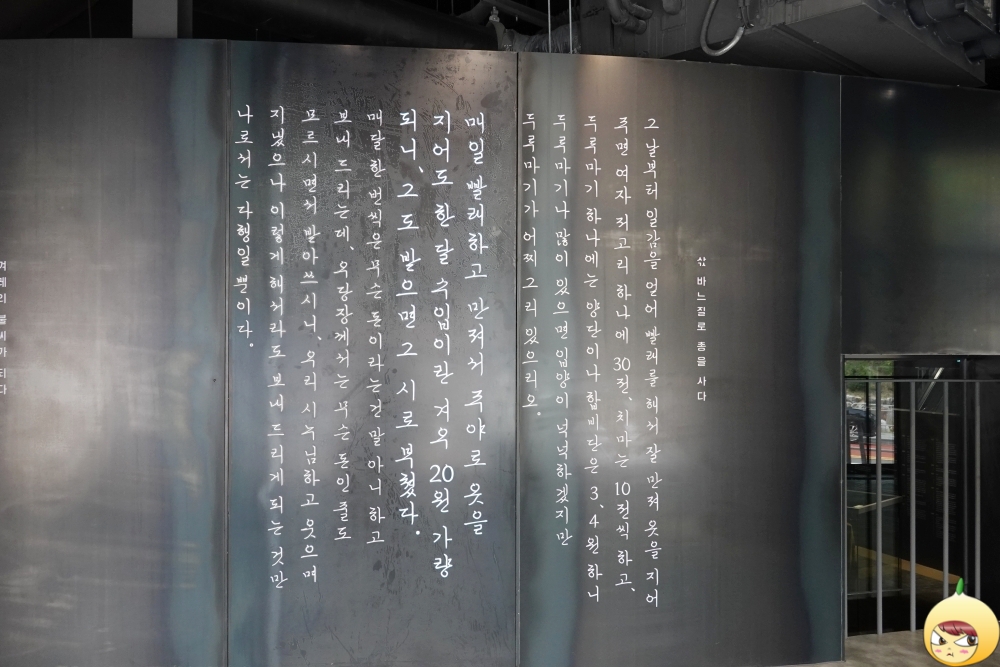 삯 바느질로 총을 사다
그날부터 일감을 얻어 빨래를 해서 잘 만져 옷을 지어
주면 여자 저고리 하나에 30전, 치마는 10전씩 하고,
두루마기 하나에는 양단이나 합비단은 3, 4원 하니
두루마기나 많이 있으면 입양이 넉넉하겠지만
두루마기가 어찌 그리 있으리오.
매일 빨래하고 만져서 주야로 옷을
지어도 한달 수입이란 겨우 20원 가량
되니, 그도 받으면 그 시로 부쳤다.
매달 한 번씩은 무슨 돈이라는건 말 아니 하고
보내 드리는데, 우당장께서는 무슨 돈인 줄도
모르시면서 받아쓰시니, 우리 시누님하고 웃으며
지냈으나 이렇게 해서라도 보내 드리게 되는 것만
나로서는 다행일 뿐이다.
불씨가 되다